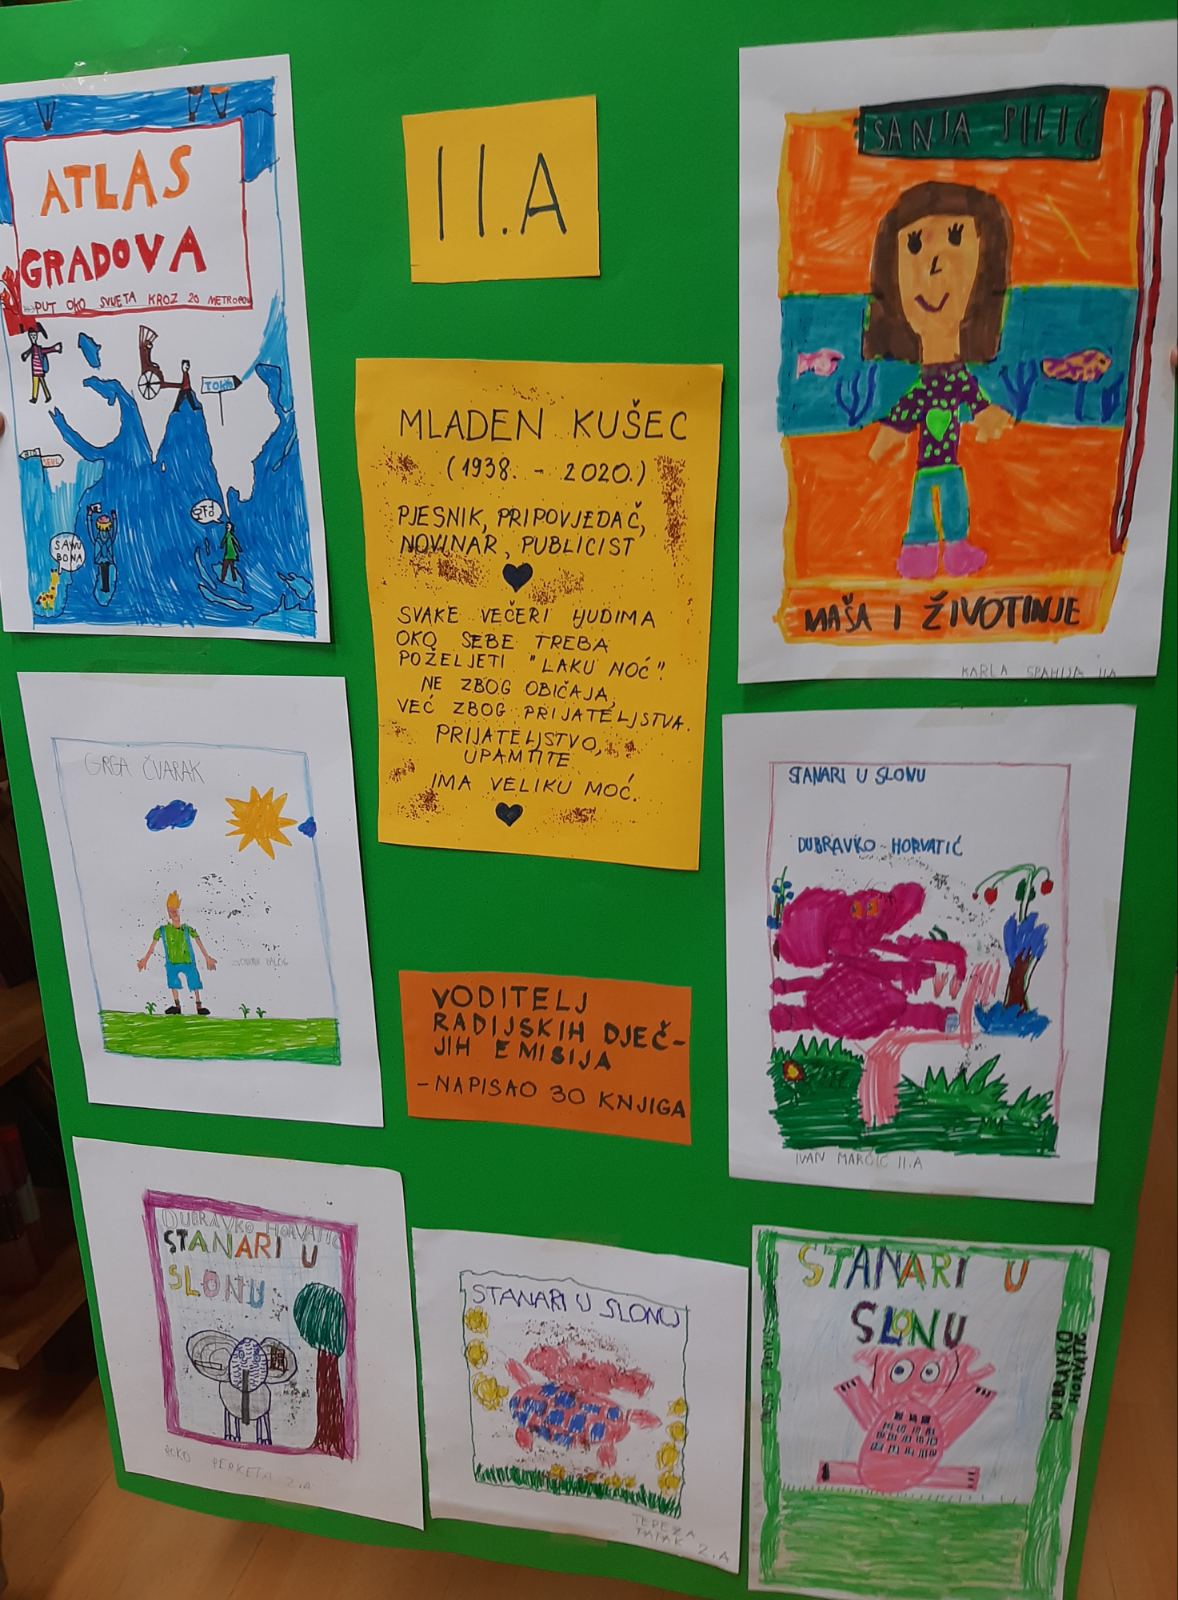 ATLAS
GRADOVA
PUT OKO SVIJETA KROZ 20 METROPOLA
TOKIO
SAWU
BONA
II.A
SANJA PILIĆ
MAŠA I ŽIVOTINJE
KARLA SPAHIJA IIA
MLADEN KUŠEC
(1938. - 2020.)
PJESNIK, PRIPOVJEDAČ,
NOVINAR, PUBLICIST
SVAKE VEČERI LJUDIMA
OKO SEBE TREBA
POŽELJETI "LAKU NOĆ".
NE ZBOG OBIČAJA,
VEĆ ZBOG PRIJATELJSTVA.
PRIJATELJSTVO,
UPAMTITE
IMA VELIKU MOĆ.
GRGA ČVARAK
STANARI U SLONU
DUBRAVKO HORVATIĆ
IVAN MARČIĆ II.A
VODITELJ
RADIJSKIH DJEČ-
JIH EMISIJA
- NAPISAO 30 KNJIGA
DUBRAVKO HORVATIĆ
STANARI U
SLONU
ROKO PERKETA 2.A
STANARI U SLONU
TEREZA
2.A
STANARI U
SLONU
DUBRAVKO
HORVATIĆ